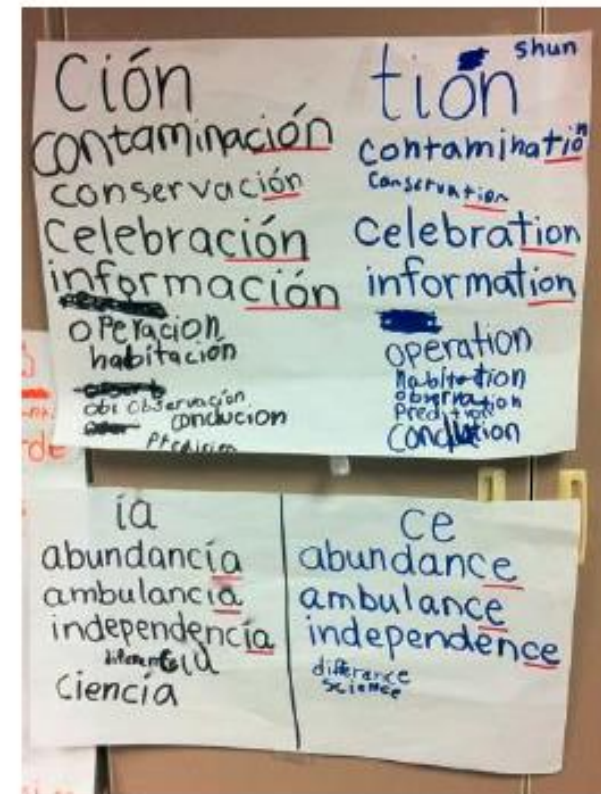 ción
contaminación
conservación
celebración
información
operacion
habitación
obi observación
conclucion
shun
tión
contamination
conservation
celebration
information
operation
habitation
observation
conclution
ía
abundancía
ambulancía
independencía
ciencía
ce
abundance
ambulance
independence
differance
science
de